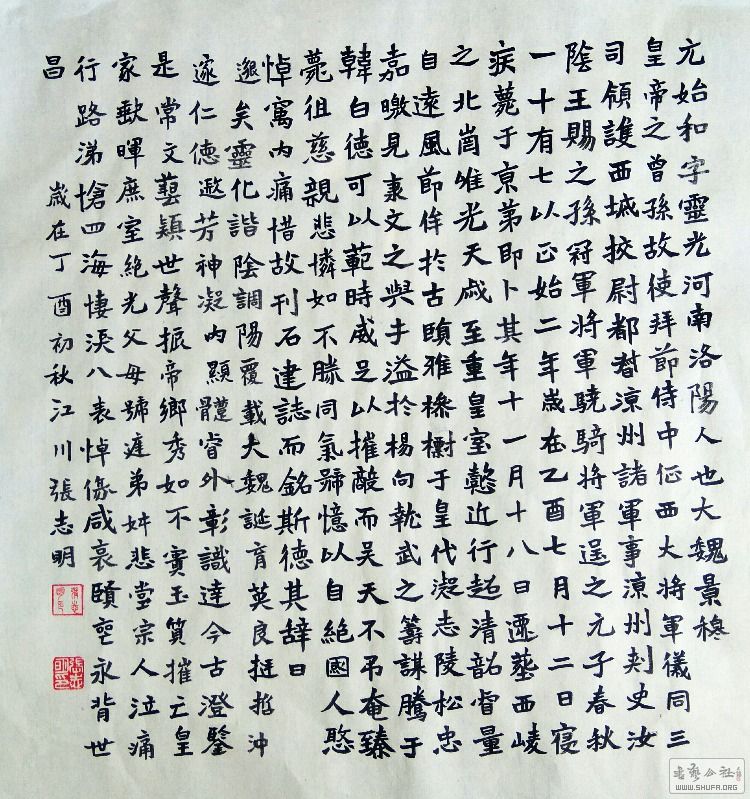 元始和字靈光河南洛陽人也大魏景穆
皇帝之曾孫故使拜節侍中征西大將軍儀同三
司領護西域挍尉都督涼州諸軍事涼州刾史汝
陰王賜之孫冠軍將軍驍騎將軍逞之元子春秋
一十有七以正始二年歲在乙酉七月十二日寑
疾薨于京第即卜其年十一月十八日遷葬西崚
之北崗唯光天戚至重皇室懿近行超清韶睿量
自遠風節侔於古頤雅槮樹于皇代凝志陵松忠
嘉皦見裹文之與才溢於楊向執武之籌謀騰于
韓白德可以範時威足以摧敵而吴天不弔奄臻
薨徂慈親悲憐如不勝同氣號憶以自絕國人愍
悼寓內痛惜故刊石建誌而銘斯德其辞曰
邈矣靈化諧陰調陽覆載大魏誕育英良挺哲沖
遂仁德遨芳神凝內顯體睿外彰識達今古澄鑒
是常文藝穎世聲振帝鄉秀如不實玉質摧亡皇
家歇暉庶室絕光父母號遑弟姊悲堂宗人泣痛
行路涕愴四海悽淚八表悼傷咸哀頤空永背世
昌
歲在丁酉初秋江川張志明
WWW.SHUFA.ORG